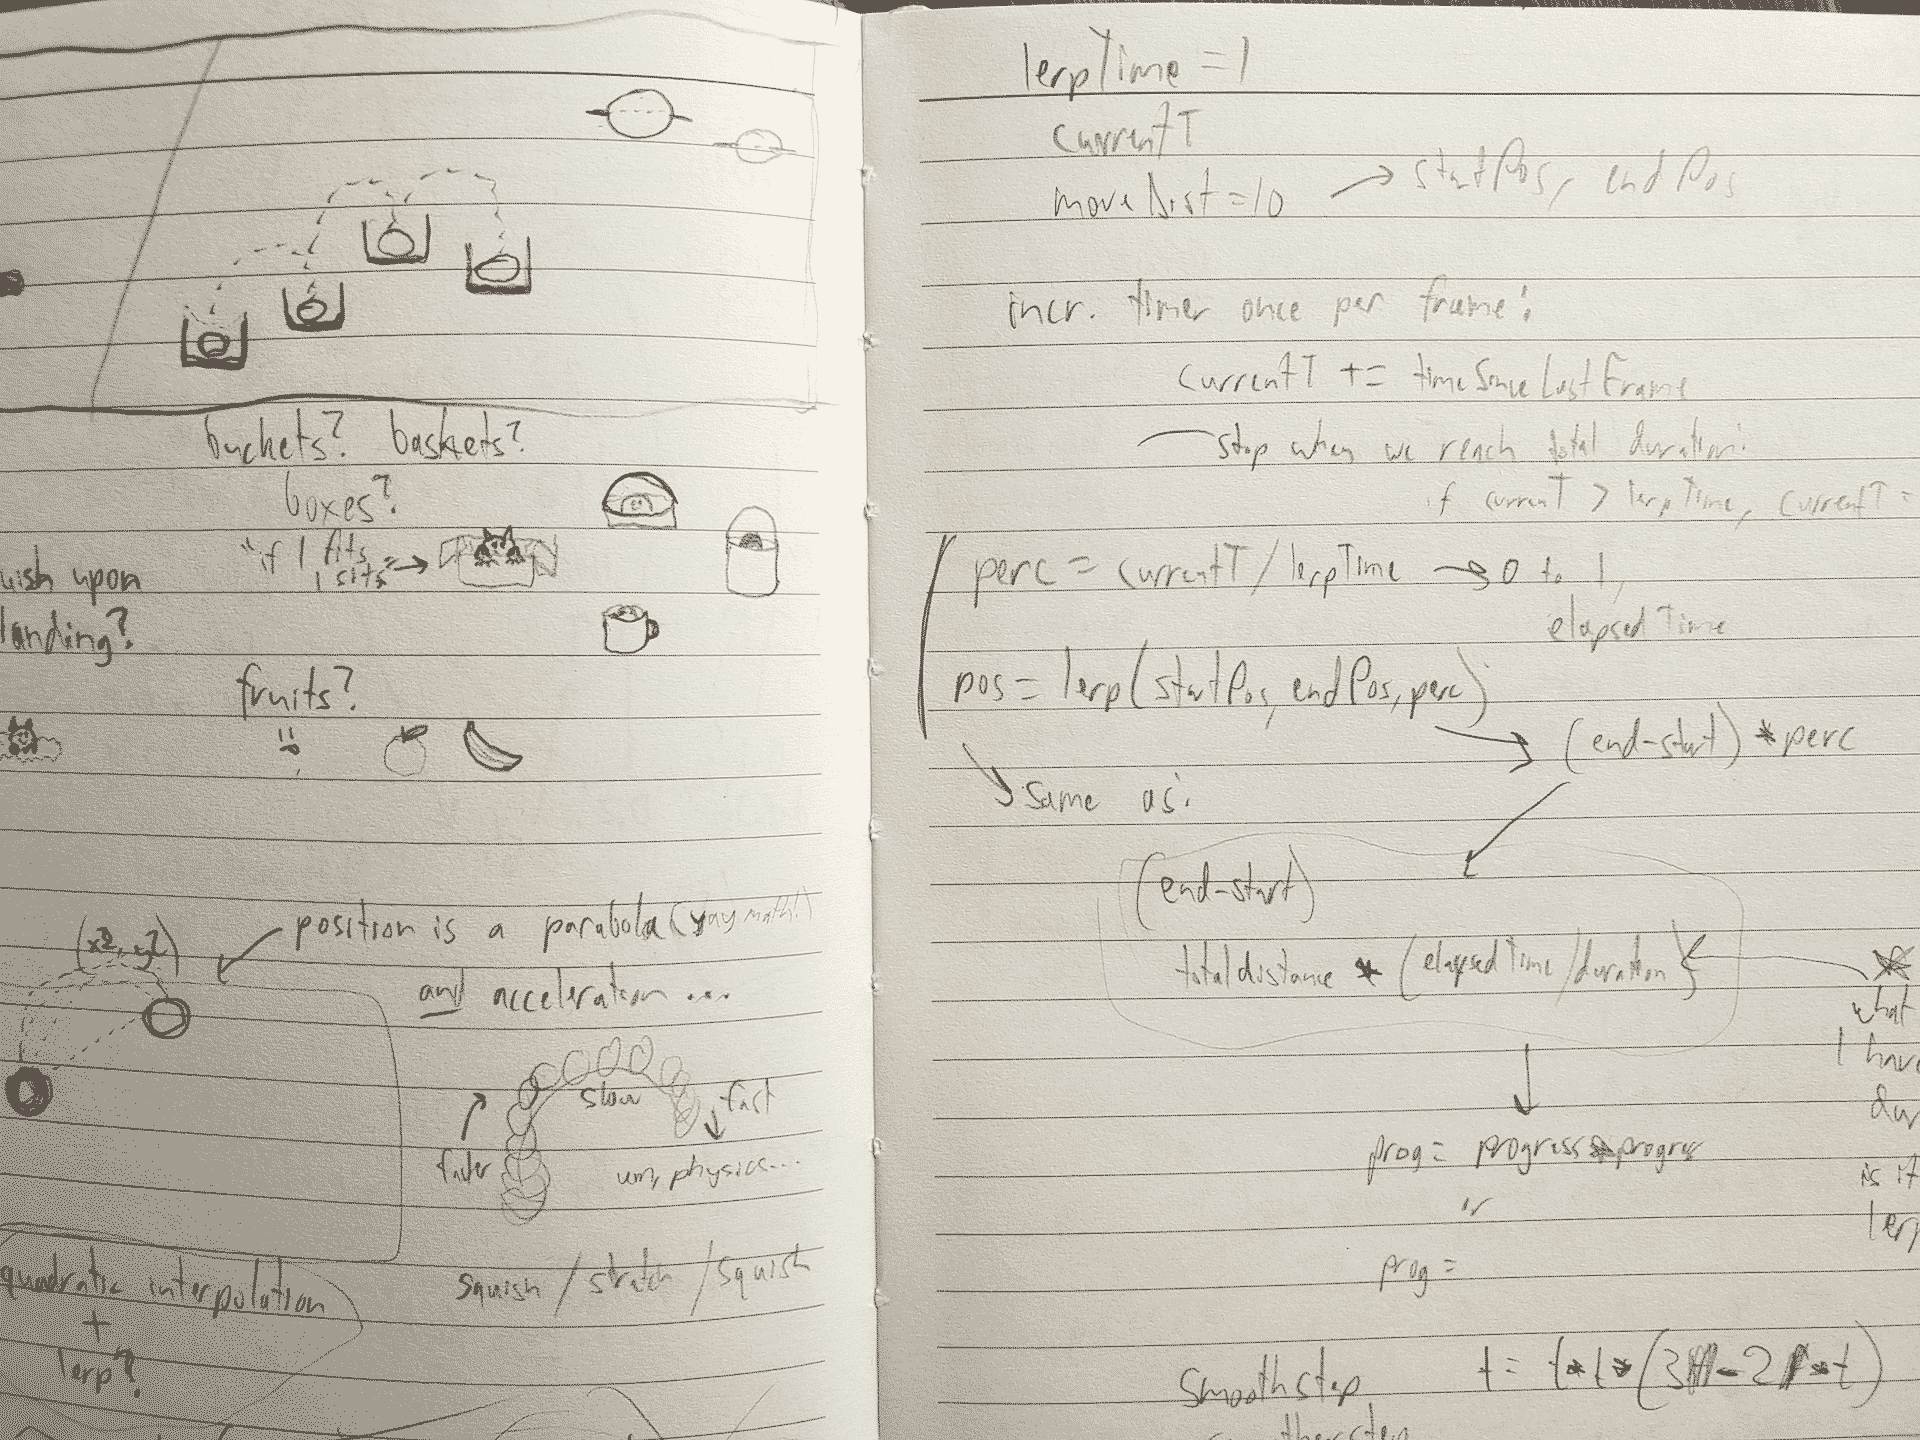 buckets? baskets?
boxes?
"if I fits
I sits"
uish upon
landing?
fruits?
(x2, y2)
position is a parabola (yay math!)
and acceleration...
slow
fast
faster
um, physics...
squish / stretch / squish
quadratic interpolation
+
lerp?
lerpTime = 1
currentT
moveDist = 10 → startPos, endPos
incr. timer once per frame:
currentT += timeSinceLastFrame
stop when we reach total duration:
if currentT > lerpTime, currentT =
perc = currentT / lerpTime → 0 to 1,
elapsedTime
pos = lerp(startPos, endPos, perc)
(end-start) * perc
same as:
(end-start)
total distance * (elapsedTime/duration)
what
I have
dur
is it
lerp
prog = progress * progress
or
prog =
Smoothstep t = t*t*(3 - 2*t)